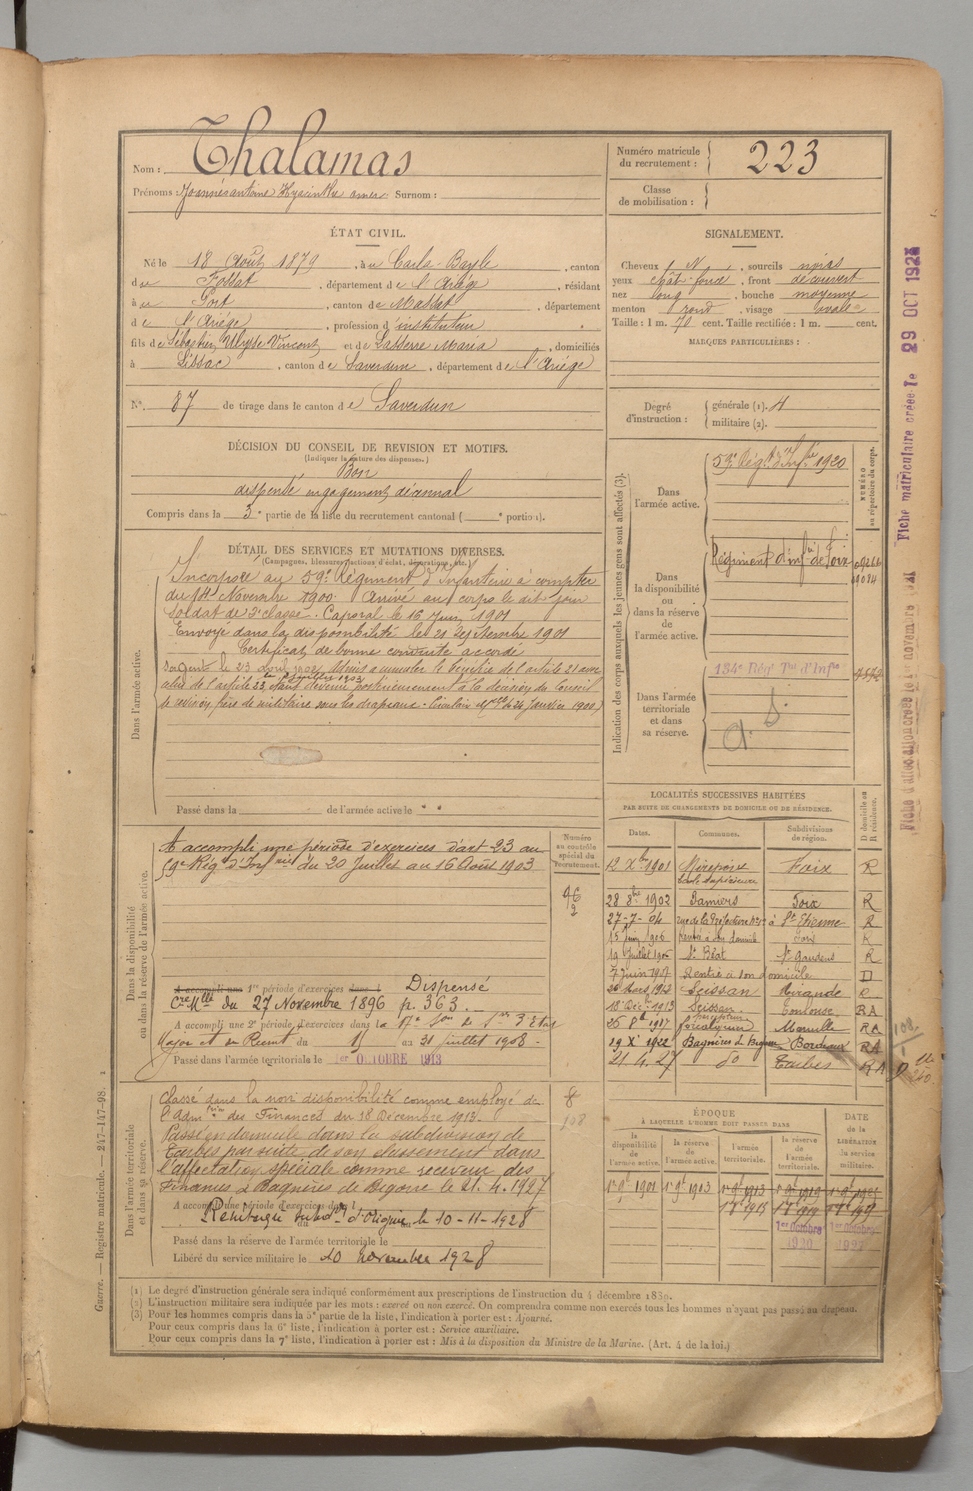 Nom : Thalamas
Prénoms : Joannès antoine Hyacinthe Surnom :
Numéro matricule du recrutement : 223
Classe de mobilisation :
ÉTAT CIVIL.
Né le 18 Août 1879, à Carla-Bayle, canton
d Fossat, département de l'Ariége, résidant
à Port, canton de Massat, département
de l'Ariége, profession d'instituteur
fils de Sébastien Ulysse Vincent et de Lasserre Maria, domiciliés
à Lissac, canton de Saverdun, département de l'Ariége
N° 87 de tirage dans le canton de Saverdun
SIGNALEMENT.
Cheveux N, sourcils noirs
yeux chât-foncé, front découvert
nez long, bouche moyenne
menton rond, visage ovale
Taille : 1 m. 70 cent. Taille rectifiée : 1 m. cent.
MARQUES PARTICULIÈRES :
Degré d'instruction : générale (1). 4
militaire (2).
DÉCISION DU CONSEIL DE REVISION ET MOTIFS.
(Indiquer la nature des dispenses.)
Bon
dispensé engagement décennal
Compris dans la 3e partie de la liste du recrutement cantonal ( e portion).
DÉTAIL DES SERVICES ET MUTATIONS DIVERSES.
(Campagnes, blessures, actions d'éclat, décorations, etc.)
Dans l'armée active.
Incorporé au 59e Régiment d'Infanterie à compter
du 14 Novembre 1900. Arrivé au corps le dit jour
Soldat de 2e classe. Caporal le 16 Juin 1901
Envoyé dans la disponibilité le 21 Septembre 1901
Certificat de bonne conduite accordé
Sergent le 23
de l'article 23, étant devenu postérieurement à la décision du Conseil
de revision, frère de militaire sous les drapeaux. (Circulaire du 24 Janvier 1900)
Passé dans la de l'armée active le
Indication des corps auxquels les jeunes gens sont affectés (3).
NUMÉRO au répertoire du corps.
Dans l'armée active.
59e Régt d'Infie 1920
Dans la disponibilité ou dans la réserve de l'armée active.
Régiment d'Infie de Foix
Dans l'armée territoriale et dans sa réserve.
134e Rég Tal d'Infie
Fiche matriculaire créée le 29 OCT 192
Fiche d'affectation créée le 1 novembre
Dans la disponibilité ou dans la réserve de l'armée active.
Numéro au contrôle spécial du recrutement.
A accompli une période d'exercices d'art 23 au
59e Régt d'Infanie du 20 Juillet au 16 Août 1903
A accompli une 1re période d'exercices dans l Dispensé
Cre Mlle du 27 Novembre 1896 p. 363.
A accompli une 2e période d'exercices dans la
Major et du Recrut du 15 au 31 juillet 1908
Passé dans l'armée territoriale le 1er OCTOBRE 1913
LOCALITÉS SUCCESSIVES HABITÉES
PAR SUITE DE CHANGEMENTS DE DOMICILE OU DE RÉSIDENCE.
Dates. Communes. Subdivisions de région. D domicile ou R résidence.
12 Xbre 1901 Mirepoix école supérieure Foix R
28 8bre 1902 Pamiers Foix R
27-7-04 rue de la Préfecture à St Etienne R
15 Juin 1906 rentré à son domicile Foix R
19 Juillet 1906 St Béat St Gaudens R
7 juin 1907 Rentré à son domicile D
Mars 1912 Seissan Mirande
18 Déc. 1913 Seissan Toulouse RA
25 8bre 1917 percepteur Forcalquier Marseille RA
19 X 1922 Bagnères de Bigorre Bordeaux RA
21.4.27 do Tarbes RA
Dans l'armée territoriale et dans sa réserve.
Classé dans la non disponibilité comme employé de
l'Admtion des Finances du 18 Décembre 1913
Passé en domicile dans la subdivision de
Tarbes par suite de son classement dans
l'affectation spéciale comme receveur des
Finances à Bagnères de Bigorre le 21.4.1927
A accompli une période d'exercices dans l
d'Origine le 10-11-1928
Passé dans la réserve de l'armée territoriale le
Libéré du service militaire le 10 novembre 1928
ÉPOQUE
À LAQUELLE L'HOMME DOIT PASSER DANS
la disponibilité de l'armée active. la réserve de l'armée active. l'armée territoriale. la réserve de l'armée territoriale.
DATE de la LIBÉRATION du service militaire.
1er 9bre 1901 1er 9bre 1913 1er 9bre 1913
1er Octobre 1920 1er Octobre
(1) Le degré d'instruction générale sera indiqué conformément aux prescriptions de l'instruction du 4 décembre 1830.
(2) L'instruction militaire sera indiquée par les mots : exercé ou non exercé. On comprendra comme non exercés tous les hommes n'ayant pas passé au drapeau.
(3) Pour les hommes compris dans la 5e partie de la liste, l'indication à porter est : Ajourné.
Pour ceux compris dans la 6e liste, l'indication à porter est : Service auxiliaire.
Pour ceux compris dans la 7e liste, l'indication à porter est : Mis à la disposition du Ministre de la Marine. (Art. 4 de la loi.)
Guerre. — Registre matricule. — 247-147-98.